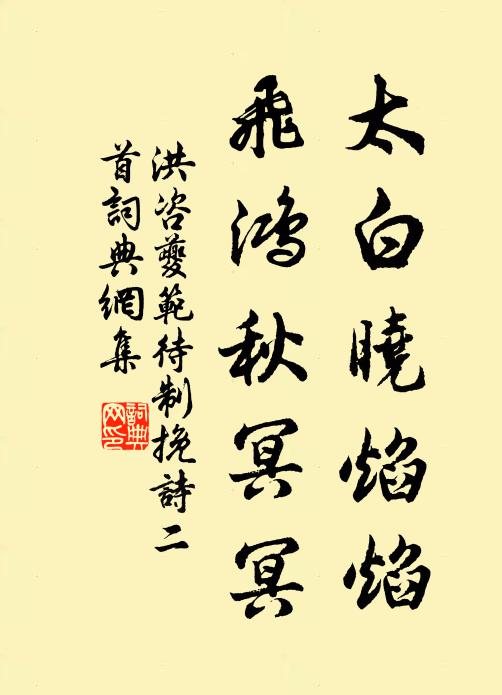 太白曉焰焰
飛鴻秋冥冥
洪咨夔範待制挽詩二
首詞典網集
詞典網印